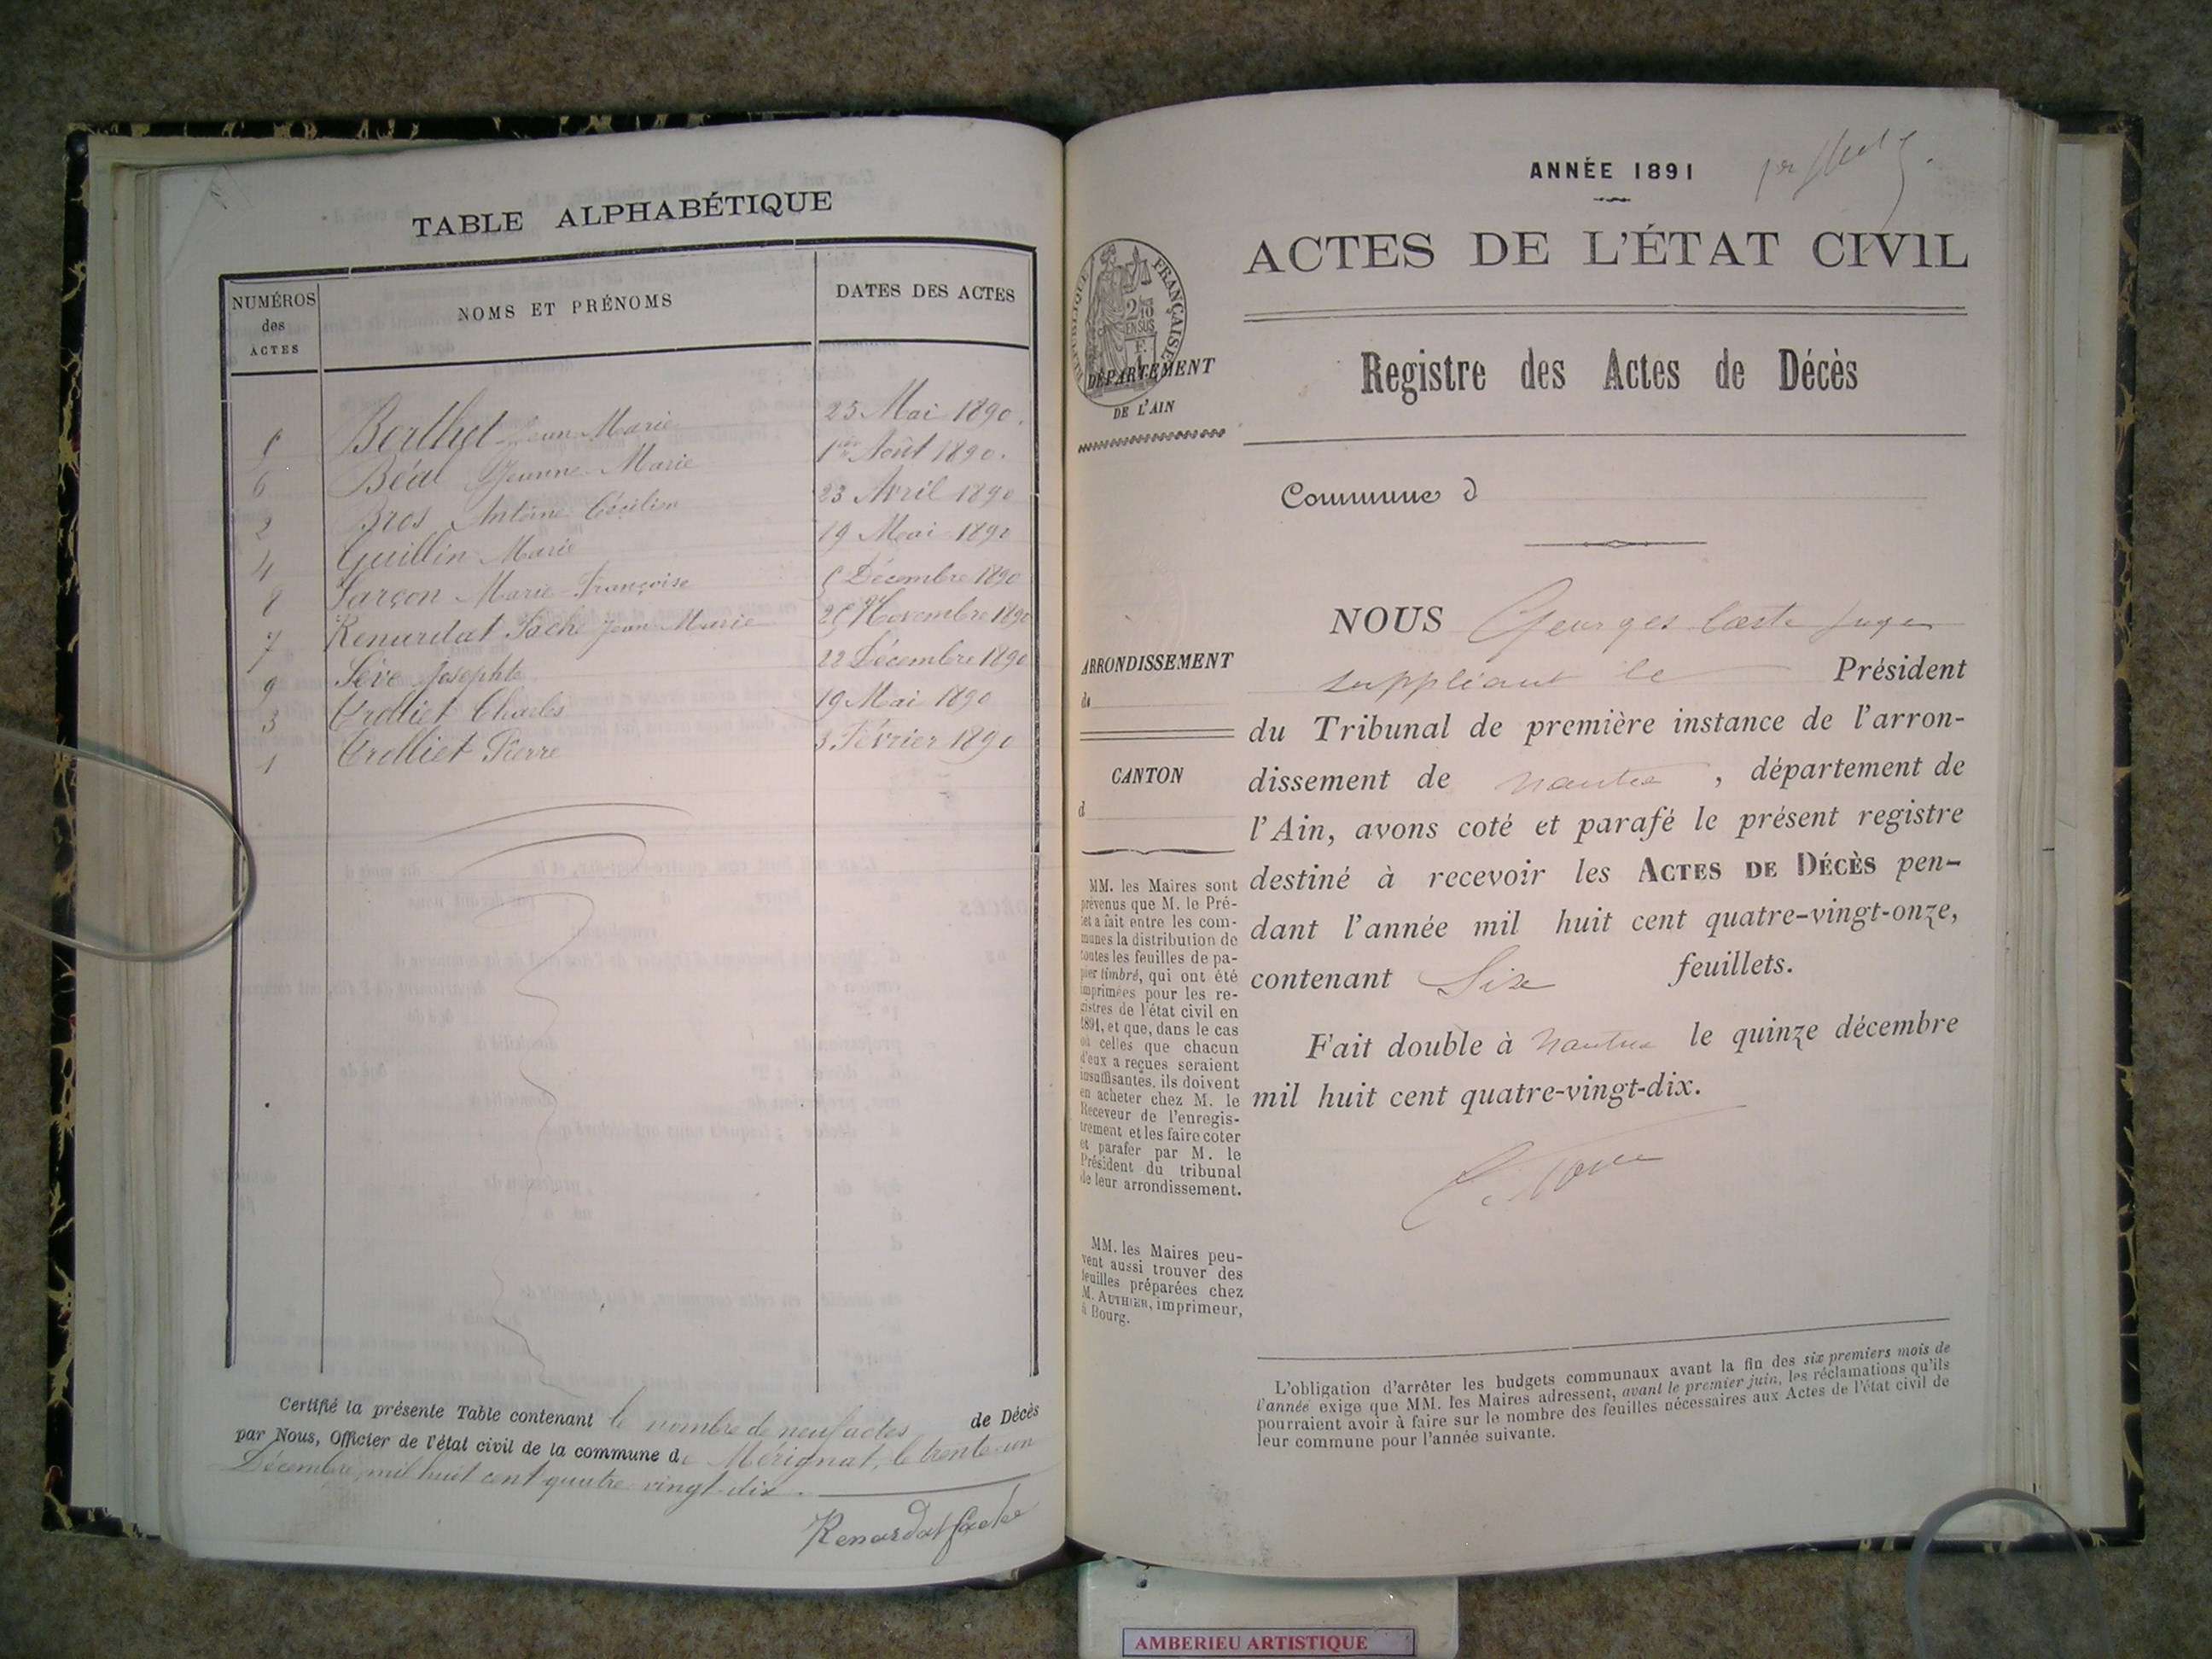 TABLE ALPHABÉTIQUE
NUMÉROS des ACTES
NOMS ET PRÉNOMS
DATES DES ACTES
5 Berthet Jean Marie 25 Mai 1890.
6 Béal Jeanne Marie 1er Août 1890.
2 Bros Antoine 23 Avril 1890
4 Guillin Marie 19 Mai 1890
8 Marie Françoise 5 Décembre 1890
7 Renardat Fache Jean Marie Novembre 1890
9 Sève Josephte 22 Décembre 1890
3 Trolliet Charles 19 Mai 1890
1 Trolliet Pierre 3 Février 1890
Certifié la présente Table contenant le nombre de neuf actes de Décès
par Nous, Officier de l'état civil de la commune de Mérignat, le trente-un
Décembre mil huit cent quatre vingt-dix.
Renardat fache
ANNÉE 1891
ACTES DE L'ÉTAT CIVIL
RÉPUBLIQUE FRANÇAISE
2/10 EN SUS
DÉPARTEMENT
DE L'AIN
Registre des Actes de Décès
Commune d
ARRONDISSEMENT
d
CANTON
d
NOUS Georges
suppléant le Président
du Tribunal de première instance de l'arron-
dissement de nantua, département de
l'Ain, avons coté et parafé le présent registre
destiné à recevoir les ACTES DE DÉCÈS pen-
dant l'année mil huit cent quatre-vingt-onze,
contenant Six feuillets.
Fait double à nantua le quinze décembre
mil huit cent quatre-vingt-dix.
MM. les Maires sont
prévenus que M. le Pré-
fet a fait entre les com-
munes la distribution de
toutes les feuilles de pa-
pier timbré, qui ont été
imprimées pour les re-
gistres de l'état civil en
1891, et que, dans le cas
où celles que chacun
d'eux a reçues seraient
insuffisantes, ils doivent
en acheter chez M. le
Receveur de l'enregis-
trement et les faire coter
et parafer par M. le
Président du tribunal
de leur arrondissement.
MM. les Maires peu-
vent aussi trouver des
feuilles préparées chez
M. AUTHIER, imprimeur,
à Bourg.
L'obligation d'arrêter les budgets communaux avant la fin des six premiers mois de
l'année exige que MM. les Maires adressent, avant le premier juin, les réclamations qu'ils
pourraient avoir à faire sur le nombre des feuilles nécessaires aux Actes de l'état civil de
leur commune pour l'année suivante.
AMBERIEU ARTISTIQUE